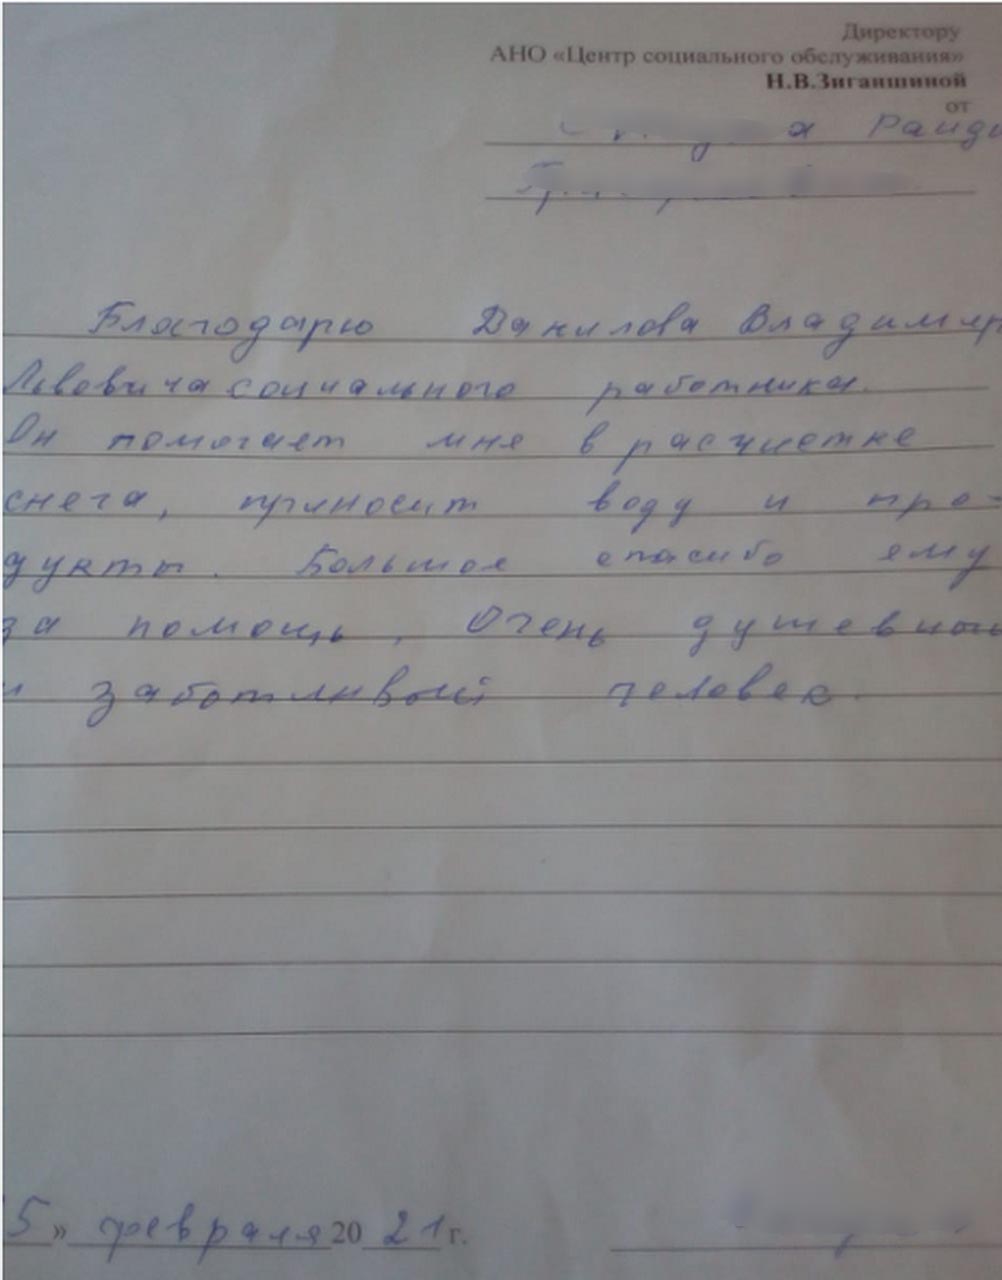 Директору
АНО «Центр социального обслуживания»
Н.В.Зиганшиной
от
Благодарю Данилова Владимир
Львовича социального работника.
Он помогает мне в расчистке
снега, приносит воду и про-
дукты. Большое спасибо ему
за помощь, Очень душевный
и заботливый человек.
5» февраля 2021 г.